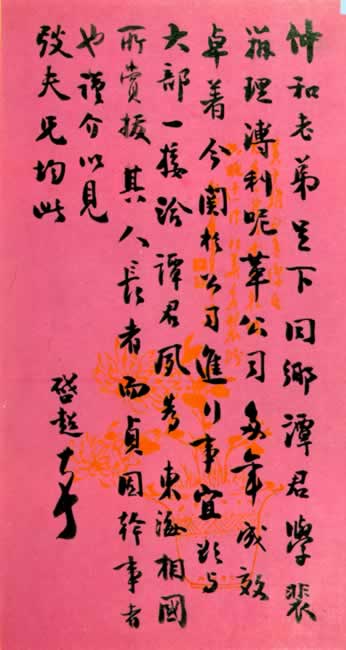 仲和老弟足下同鄉潭君學裴
辦理溥利呢革公司多年成效
卓着今關於公司進行事宜欲与
大部一接洽譚君夙為東海相國
所賞拔其人長者而貞固幹事者
也謹介以見
弢夫兄均此
啓超 十八